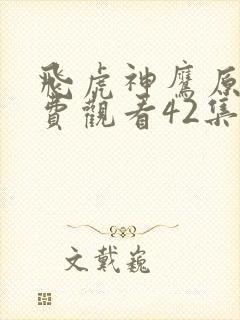 飛虎神鷹原
費觀看42集
文戴巍